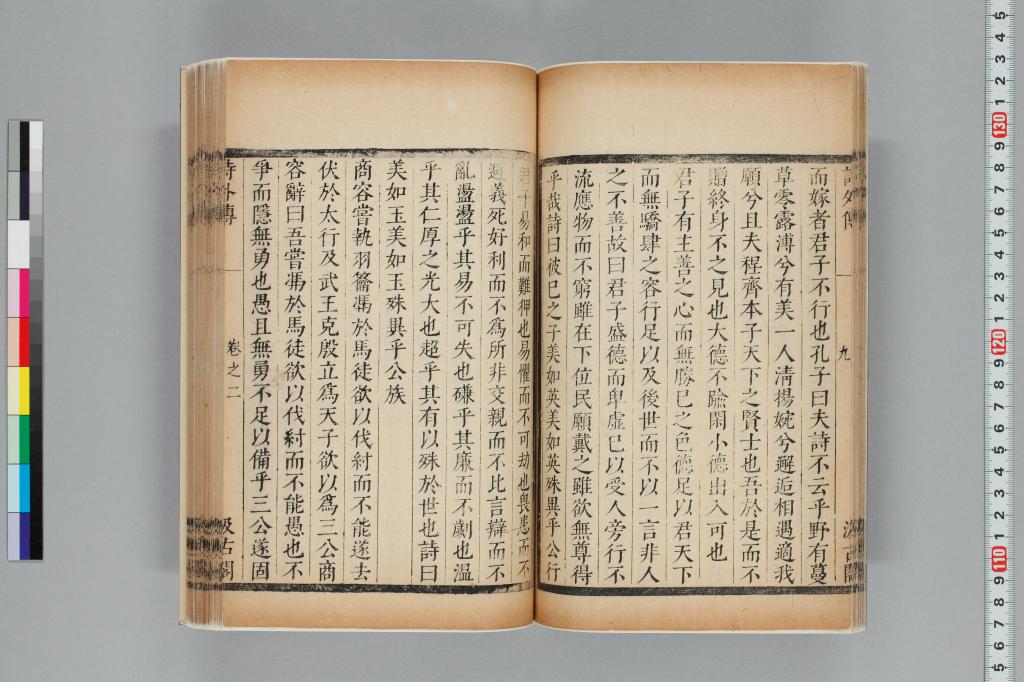 詩外傳 九 汲古閣
而嫁者君子不行也孔子曰夫詩不云乎野有蔓
草零露漙兮有美一人清揚婉兮邂逅相遇適我
願兮且夫程齊本子天下之賢士也吾於是而不
贈終身不之見也大德不踰閑小德出入可也
君子有主善之心而無勝已之色德足以君天下
而無驕肆之容行足以及後世而不以一言非人
之不善故曰君子盛德而卑虛已以受人旁行不
流應物而不窮雖在下位民願戴之雖欲無尊得
乎哉詩曰彼已之子美如英美如英殊異乎公行
君子易和而難狎也易懼而不可劫也畏患而不
避義死好利而不爲所非交親而不比言辯而不
亂盪盪乎其易不可失也磏乎其廉而不劌也温
乎其仁厚之光大也超乎其有以殊於世也詩曰
美如玉美如玉殊異乎公族
商容嘗執羽籥馮於馬徒欲以伐紂而不能遂去
伏於太行及武王克殷立爲天子欲以爲三公商
容辭曰吾嘗馮於馬徒欲以伐紂而不能愚也不
爭而隱無勇也愚且無勇不足以備乎三公遂固
詩外傳 卷之二 汲古閣
5
4
3
2
1
130
9
8
7
6
5
4
3
2
1
120
9
8
7
6
5
4
3
2
1
110
9
8
7
6
5